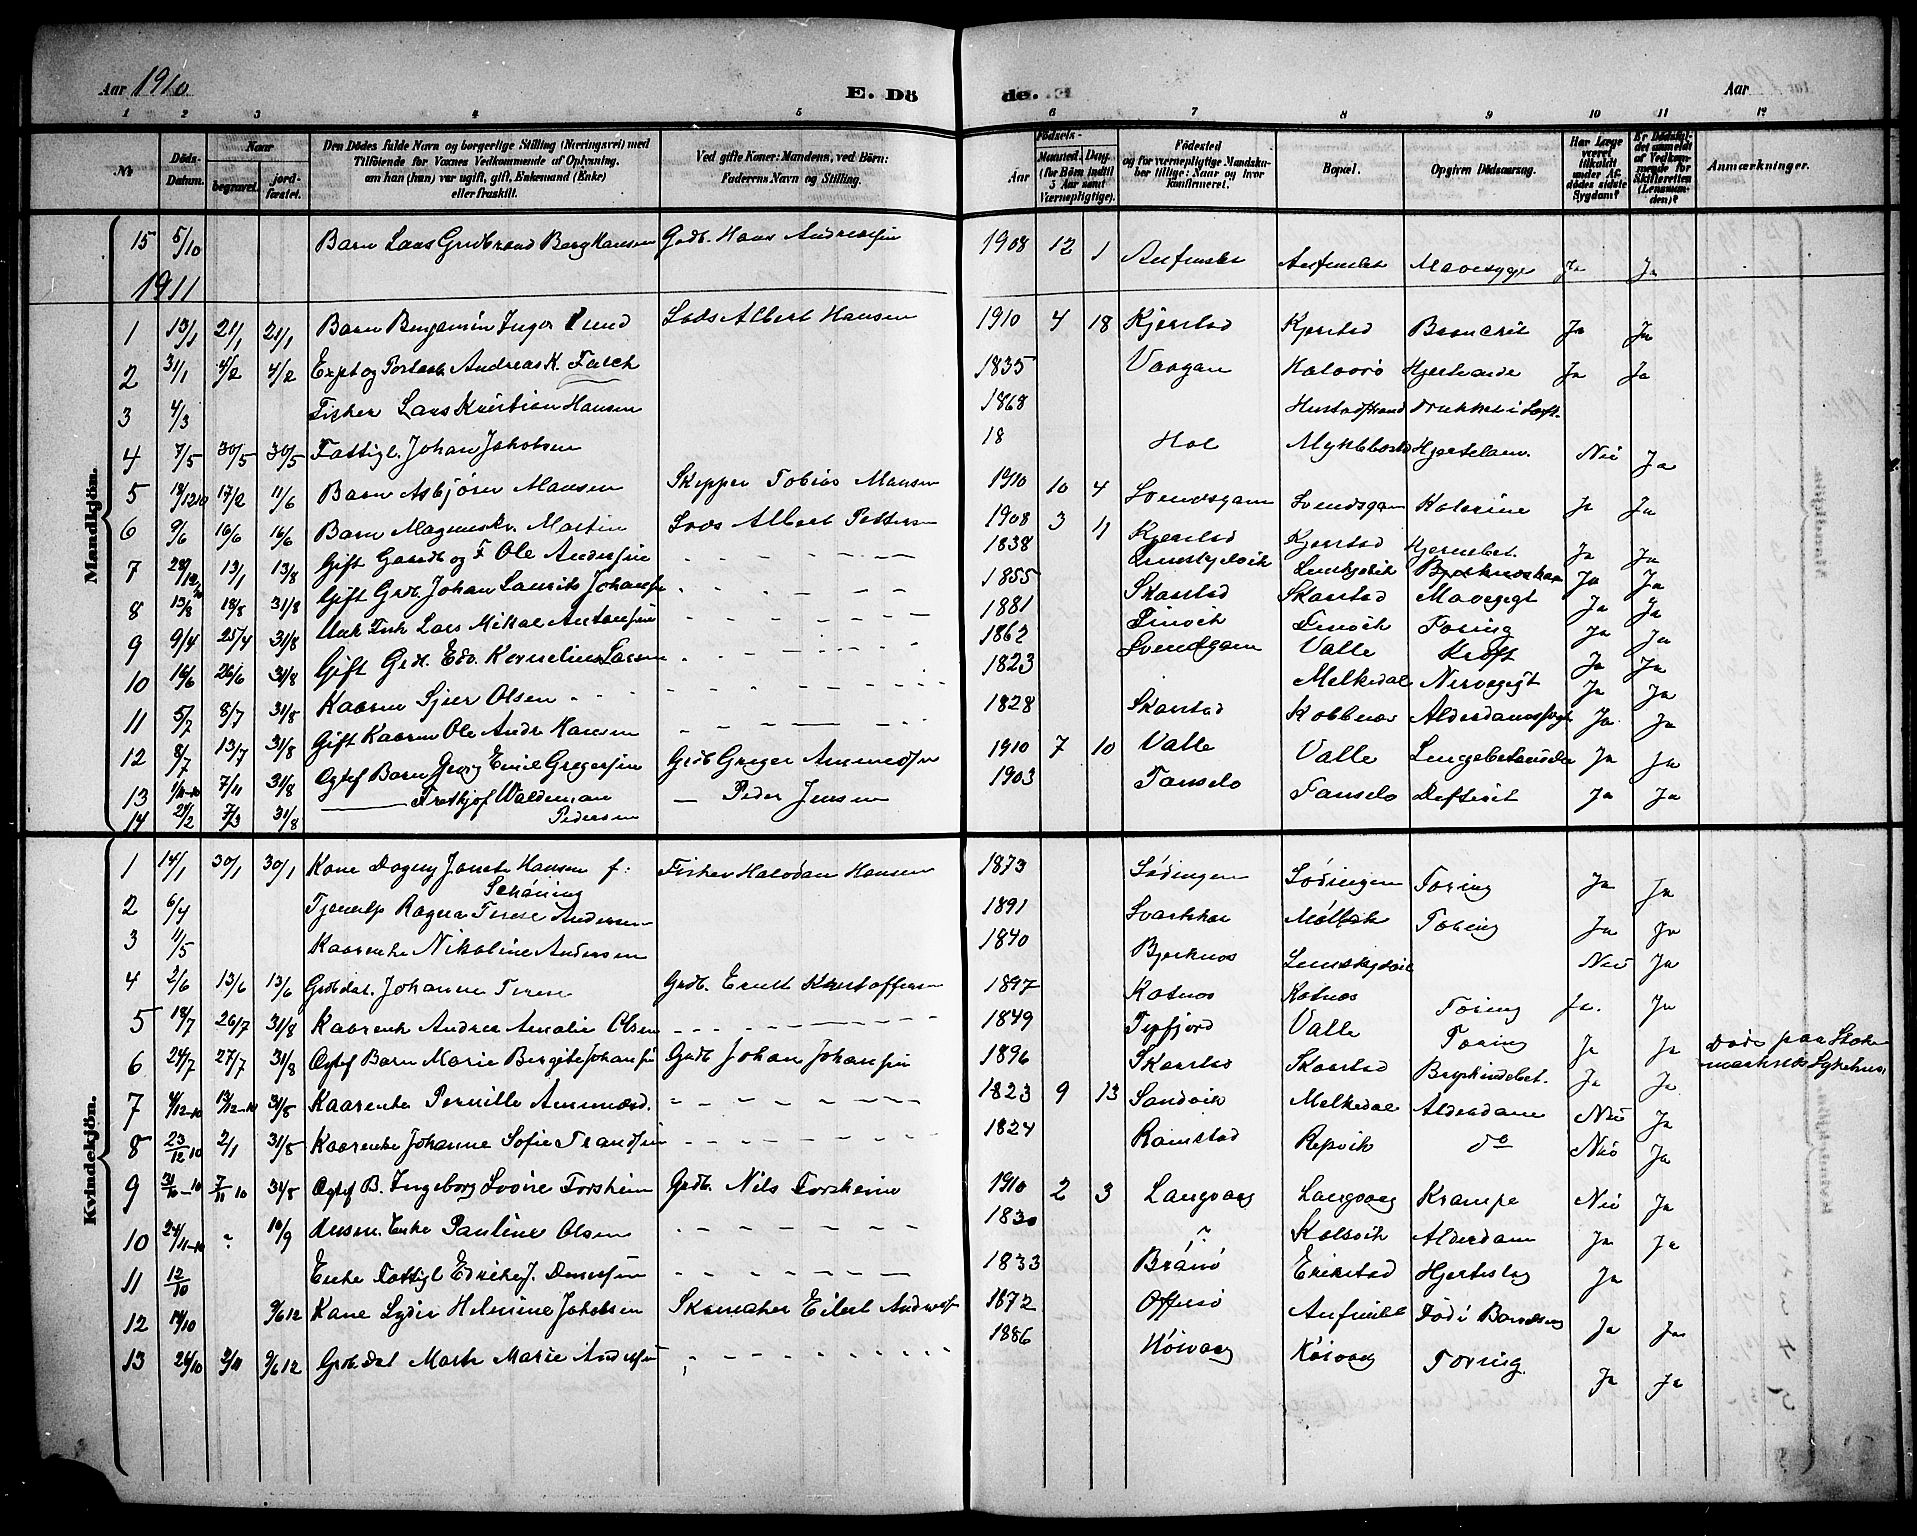 Aar 1910 E. Dö de. E Aar
1 2 3 4 5 6 7 8 9 10 11 12
No Döds-Datum. Naar begravet. jordfæstet. Den Dödes fulde Navn og borgerlige Stilling (Næringsvei) med Tilföiende for Voxnes Vedkommende af Oplysning, om han (hun) var ugift, gift, Enkemand (Enke) eller fraskilt. Ved gifte Koner: Mandens, ved Börn: Faderens Navn og Stilling. Födsels- Aar Maaned. Dag. (for Börn indtil 5 Aar samt Værnepligtige). Födested og for værnepligtige Mandskaber tillige: Naar og hvor konfirmeret. Bopæl. Opgiven Dödsaarsag. Har Læge været tilkaldt under Afdödes sidste Sygdom? Er Dödsfaldet anmeldt af Vedkommende for Skifteretten (Lensmanden)? Anmærkninger.
Mandkjön.
15 5/10 Barn Laus Gudbrand Berg Hansen Gadb. Hans Andreassen 1908 12 1 Anfindsle Anfindsle Mavesyge Ja Ja
1911
1 13/1 21/1 21/1 Barn Benjamin Inger Lund Lods Albert Hansen 1910 4 18 Kjerstad Kjerstad Broncrit Ja Ja
2 31/1 4/2 4/2 Expt og Posteab Andreas K. Falch 1835 Vaagan Kalvörö Hjerteonde Ja Ja
3 4/3 Fisker Lars Kristian Hansen 1868 Hustadstrand Drukket i Loft.
4 7/5 30/5 30/5 Fattigl. Johan Jakobsen 18 Hol Mykkebostad Hjertelam. Nei Ja
5 19/12 10 17/2 11/6 Barn Asbjörn Mansen Skipper Tobias Mansen 1910 10 4 Svendsgam Svendsgam Kolerine Ja Ja
6 9/6 16/6 16/6 Barn Magnus Kr. Martin Lods Albert Pettersen 1908 3 11 Kjerstad Kjerstad Hjernebet. Ja Ja
7 13/1 13/8 Gift Gaardb og F Ole Andersen 1838 Lenskjelvik Lenskjelvik Ja Ja
8 13/8 18/8 31/8 Gift Grdb. Johan Laurits Johansen 1855 Skarstad Skarstad Mavegigt Ja Ja
9 9/4 25/4 31/8 Unk Fisk Lars Mikal Antonsen 1881 Finvik Finvik Tæring Ja Ja
10 16/6 26/6 31/8 Gift Grdb. Edv. Kornelius Larsen 1862 Svendsgam Valle Kræft Ja Ja
11 5/7 8/7 31/8 Kaarm Sjur Olsen 1823 Melkedal Nervegigt Ja Ja
12 8/7 13/7 31/8 Gift Kaarm Ole Andr Hansen 1828 Skarstad Kobbnes Ja Ja
13 1/11-10 7/11 31/8 Ogtef Barn Georg Emil Gregersen Gadb Greger Ammundsen 1910 7 10 Valle Valle Lungebetændelse Ja Ja
14 24/2 7/3 31/8 Fridtjof Waldemar Pedersen — Peder Jensen 1903 Fanselo Fanselo Defterit Ja Ja
Kvindekjön.
1 14/1 30/1 30/1 Kone Dagny Janete Hansen f: Schöning Fisker Halvdan Hansen 1873 Lödingen Lödingen Tæring Ja Ja
2 6/4 Tjenerp Ragna Terese Andersen 1891 Svartskar Molbek Tæring Ja Ja
3 11/5 Kaarenke Nikoline Andersen 1840 Bjerknes Lenskjelvik Nei Ja
4 2/6 13/6 13/6 Grdb dat. Johanne Terese Gadb. Ernst Kristoffersen 1897 Kotnes Kotnes Tæring Ja. Ja
5 18/7 26/7 31/8 Kaarenk Andrea Amalie Olsen 1849 Tysfjord Valle Tæring Ja Ja Döde paa Stokmarknes Sykehus.
6 24/7 27/7 31/8 Ogtef Barn Marie Bergite Johansen Gadb Johan Johansen 1896 Skarstad Skarstad Brysthindebet. Ja Ja
7 4/12-10 13/12-10 31/8 Kaarenke Pernille Ammund. 1823 9 13 Sandvik Melkedal Alderdom Nei Ja
8 23/12 10 2/1 31/8 Kaarenke Johanne Sofie Trandsen 1824 Ramstad Repvik do Nei Ja
9 31/10-10 7/11 10 31/8 Ogtef B. Ingeborg Lovise Forsheim Gadb. Nils Forsheim 1910 2 3 Langvaag Langvaag Krampe Nei Ja
10 24/11-10 ? 10/9 Enke Pauline Olsen 1830 ? Kalsvik Alderdom Ja Ja
11 12/10 Enke Fattigl Edrikke J. 1833 Brönö Erikstad Hjerteslag Ja
12 14/10 9/6 12 Kone Lydia Helmine Jakobsen Skomaker Eilert Andreas 1872 Offersö Anfindsle Död i Barnseng Ja Ja
13 26/10 3/11 9/6 12 Grdb. Dat Marta Marie Andersen 1886 Höivaag Köivaag Tæring Ja Ja